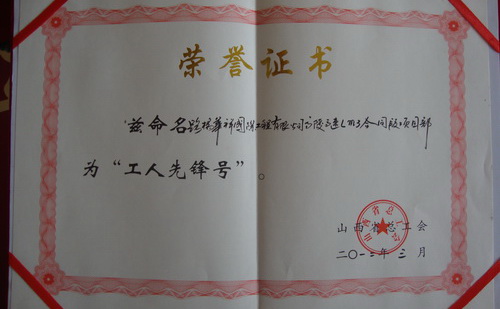 荣誉证书
兹命名路桥华祥国际工程有限公司高陵高速LM3合同段项目部
为“工人先锋号”。
山西省总工会
二〇一二年三月